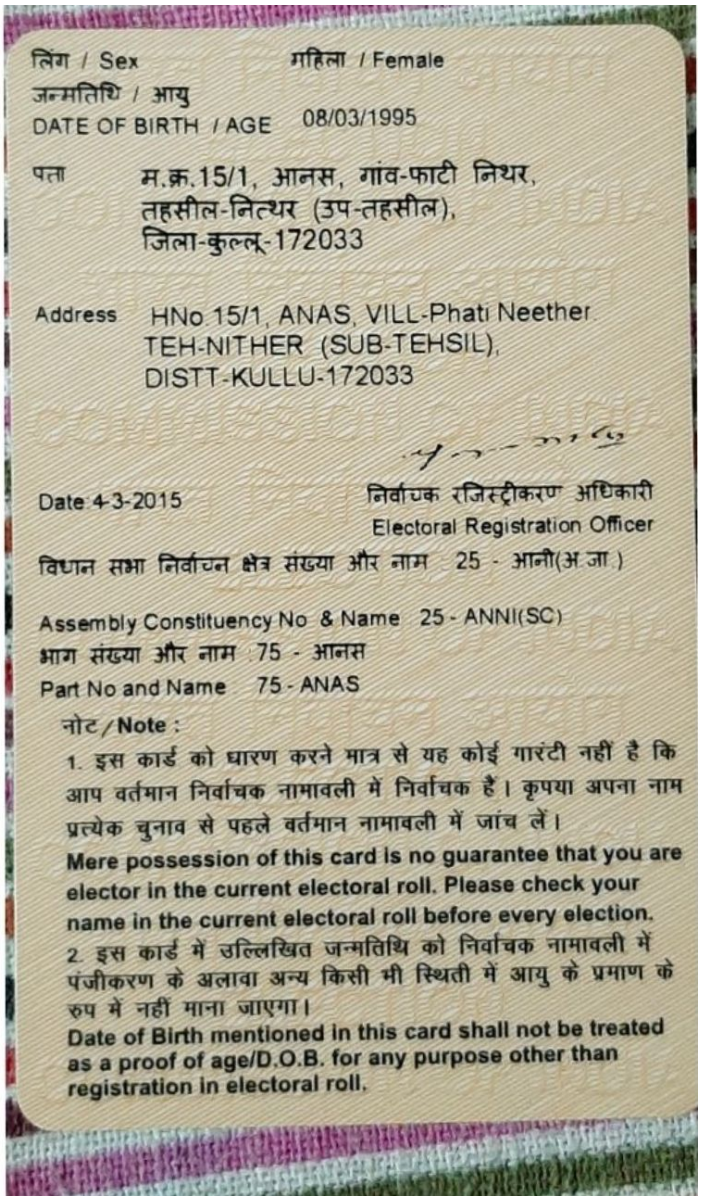 लिंग / Sex महिला / Female
जन्मतिथि / आयु
DATE OF BIRTH / AGE 08/03/1995
पता म.क्र.15/1, आनस, गांव-फाटी निथर,
तहसील-नित्थर (उप-तहसील),
जिला-कुल्लू-172033
Address HNo.15/1, ANAS, VILL-Phati Neether.
TEH-NITHER (SUB-TEHSIL),
DISTT-KULLU-172033
Date:4-3-2015 निर्वाचक रजिस्ट्रीकरण अधिकारी
Electoral Registration Officer
विधान सभा निर्वाचन क्षेत्र संख्या और नाम : 25 - आनी(अ.जा.)
Assembly Constituency No & Name 25 - ANNI(SC)
भाग संख्या और नाम :75 - आनस
Part No and Name 75 - ANAS
नोट/Note :
1. इस कार्ड को धारण करने मात्र से यह कोई गारंटी नहीं है कि
आप वर्तमान निर्वाचक नामावली में निर्वाचक हैं। कृपया अपना नाम
प्रत्येक चुनाव से पहले वर्तमान नामावली में जांच लें।
Mere possession of this card is no guarantee that you are
elector in the current electoral roll. Please check your
name in the current electoral roll before every election.
2. इस कार्ड में उल्लिखित जन्मतिथि को निर्वाचक नामावली में
पंजीकरण के अलावा अन्य किसी भी स्थिती में आयु के प्रमाण के
रुप में नहीं माना जाएगा।
Date of Birth mentioned in this card shall not be treated
as a proof of age/D.O.B. for any purpose other than
registration in electoral roll.